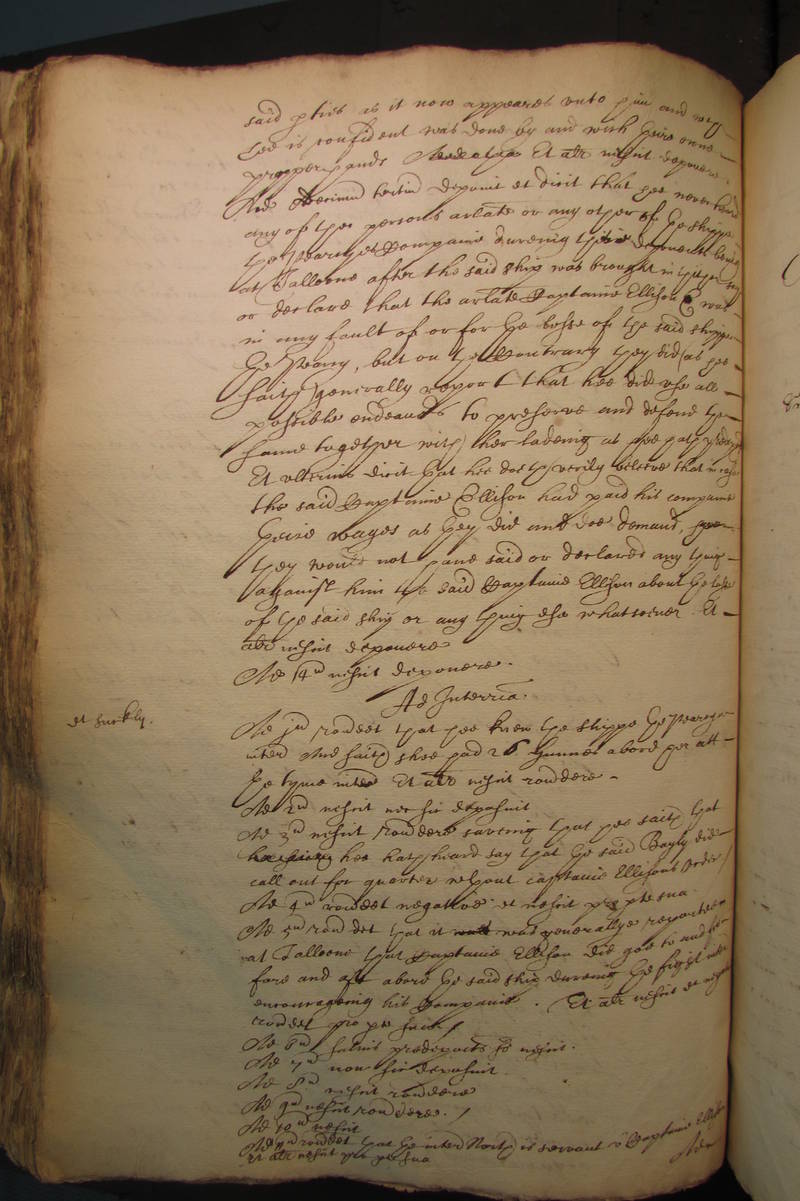 said pties as it now appeares unto him and wch
hee is confident was done by and with theire owne
propper hands Et alr nescit deponere
Ad decimum tertiu deponit et dicit that hee never heard
any of the persons arlate or any other of the shipps
the Pearles Companie dureing theire deponents being
at Talloone after the said ship was brought in thither say
or declare that the arlate Captaine Ellison was
in any fault of or for the losse of the said shipp
the Pearle, but on the contrary they did (as hee
saith) generally report that hee did use all
possible endeavrs to preserve and defend the
same together with her ladeing as hee hath
Et ulterius dicit that hee doth verily beleeve that in case
the said Captaine Ellison had paid his companie
theire wages as they did and doe demand,
they would not have said or declared any thing
against him the said Captaine Ellison about the losse
of the said ship or any thing else whatsoever Et
alr nescit deponere
Ad 14m nescit deponere.
Ad Interria.
Ad jm rondet that hee knew the shippe the Pearle
interd And saith shee had 26 Gunnes abord her att
the tyme interd Et alr nescit rondere
Ad 2m nescit nec sic deposuit
Ad 3m nescit rondere saveing that hee saith that
hee hath heard say that the said Bayly did
call out for quarter without captaine Ellisons order
Ad 4m rondet negative et nescit pro pte sua
Ad 5m rondet that it was generallye reported
at Talloone that Captaine Ellison did goe to and
fore and aft abord the said ship dureing the fight
encourageing his Companie. Et alr nescit
rondet pro pte sua
Ad 6m
Ad 7m non sic deposuit
Ad 8m nescit rondere
Ad 9m nescit rondere.
Ad 10m nescit
rondet that the interd North is servant to Captaine Ellison
Et alr nescit pro pte sua